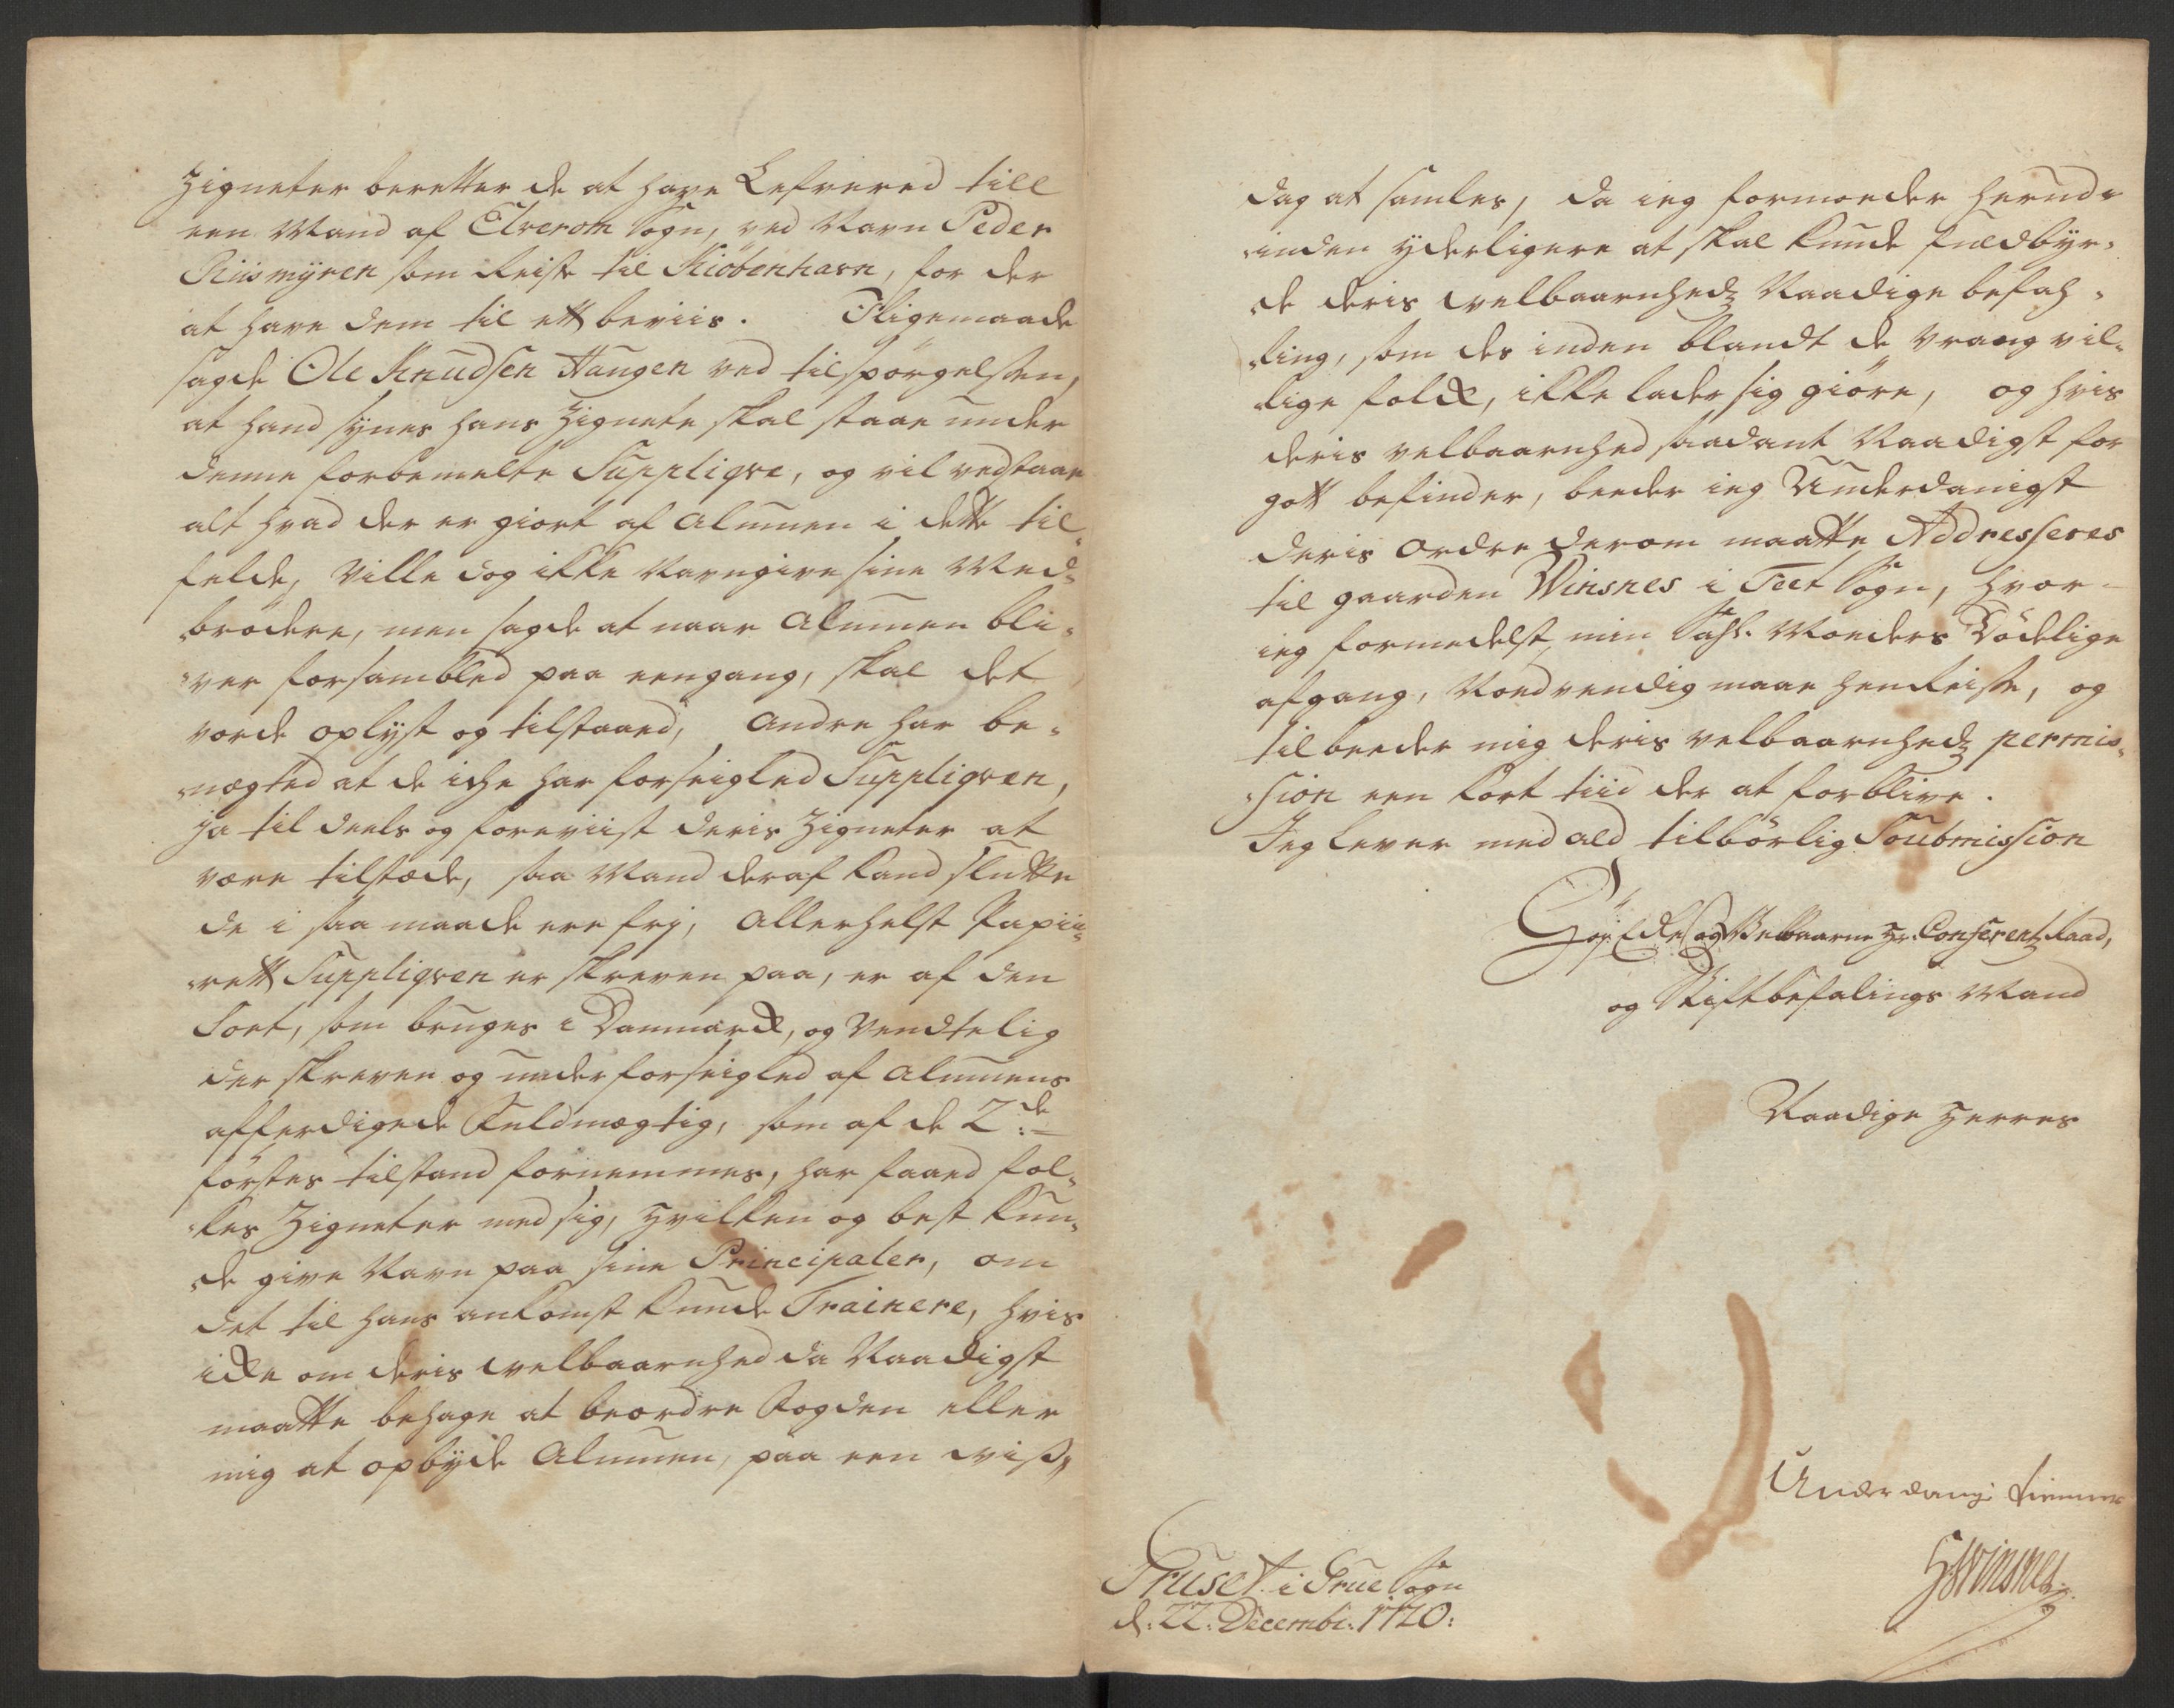 Zigneter beretter de at have Lefvered till
een Mand af Elverom Sogn, ved Navn Peder
Riismyren som Reiste til Kiöbenhavn, for der
at have dem til ett beviis. Ligemaade
sagde Ole Knudsen Haugen ved tilspørgelsen,
at hand synes hans Zignete skal staae under
denne forbemelte Suppliqve, og vil vedstaae
alt hvad der er giort af Almuen i dette til-
felde, Ville dog ikke Navngive sine Med-
brödere, men sagde at naar Almuen bli-
ver forsambled paa eengang, skal det
vorde oplyst og tilstaaed, Andre har be-
nægted at de iche har forseigled Suppliqven,
ja til deels og foreviist deris Zigneter at
være tilstæde, saa Mand deraf kand slutte
de i saa maade ere fry, allerhelst Papii-
rett Suppliqven er skreven paa, er af den
Sort, som bruges i Danmarck, og Vendtelig
der skreven og underforseigled af Almuens
afferdigede Fuldmægtig, som af de 2de
förstes tilstand fornemmes, har faaed fol-
kes Zigneter med sig, hvilken og best kun-
de give Navn paa sine Principaler, om
det til hans ankomst kunde Trainere, hvis
icke om deris velbaarnhed da Naadigst
maatte behage at beordre Fogden eller
mig at opbyde Almuen, paa een viss
dag at samles, da ieg formoeder herud-
inden yderligere at skal kunde fuldbyr-
de deris velbaarnhedz Naadige befah-
ling, som des inden blandt de vrang vil-
lige folck, ikke lader sig giöre, og hvis
deris velbaarnhed saadant Naadigst for
gott befinder, beeder ieg Underdanigst
deris ordre derom maatte Addresseres
til gaarden Winsnes i Feet Sogn, hvor
ieg formedelst min Sahl. Moeders Dödelige
afgang, Nødvendig maae henreise, og
tilbeeder mig deris velbaarnhedz permis-
sion een kort tiid der at forblive.
Jeg lever med all tilbörlig Soubmission
Höy Edle og Velbaarne Hr. Conferentz Raad,
og Stiftbefalings Mand
Naadige Herres
Underdanig tienner
HWinsnes
Gruset i Grue Sogn
d: 22: Decembr: 1720: